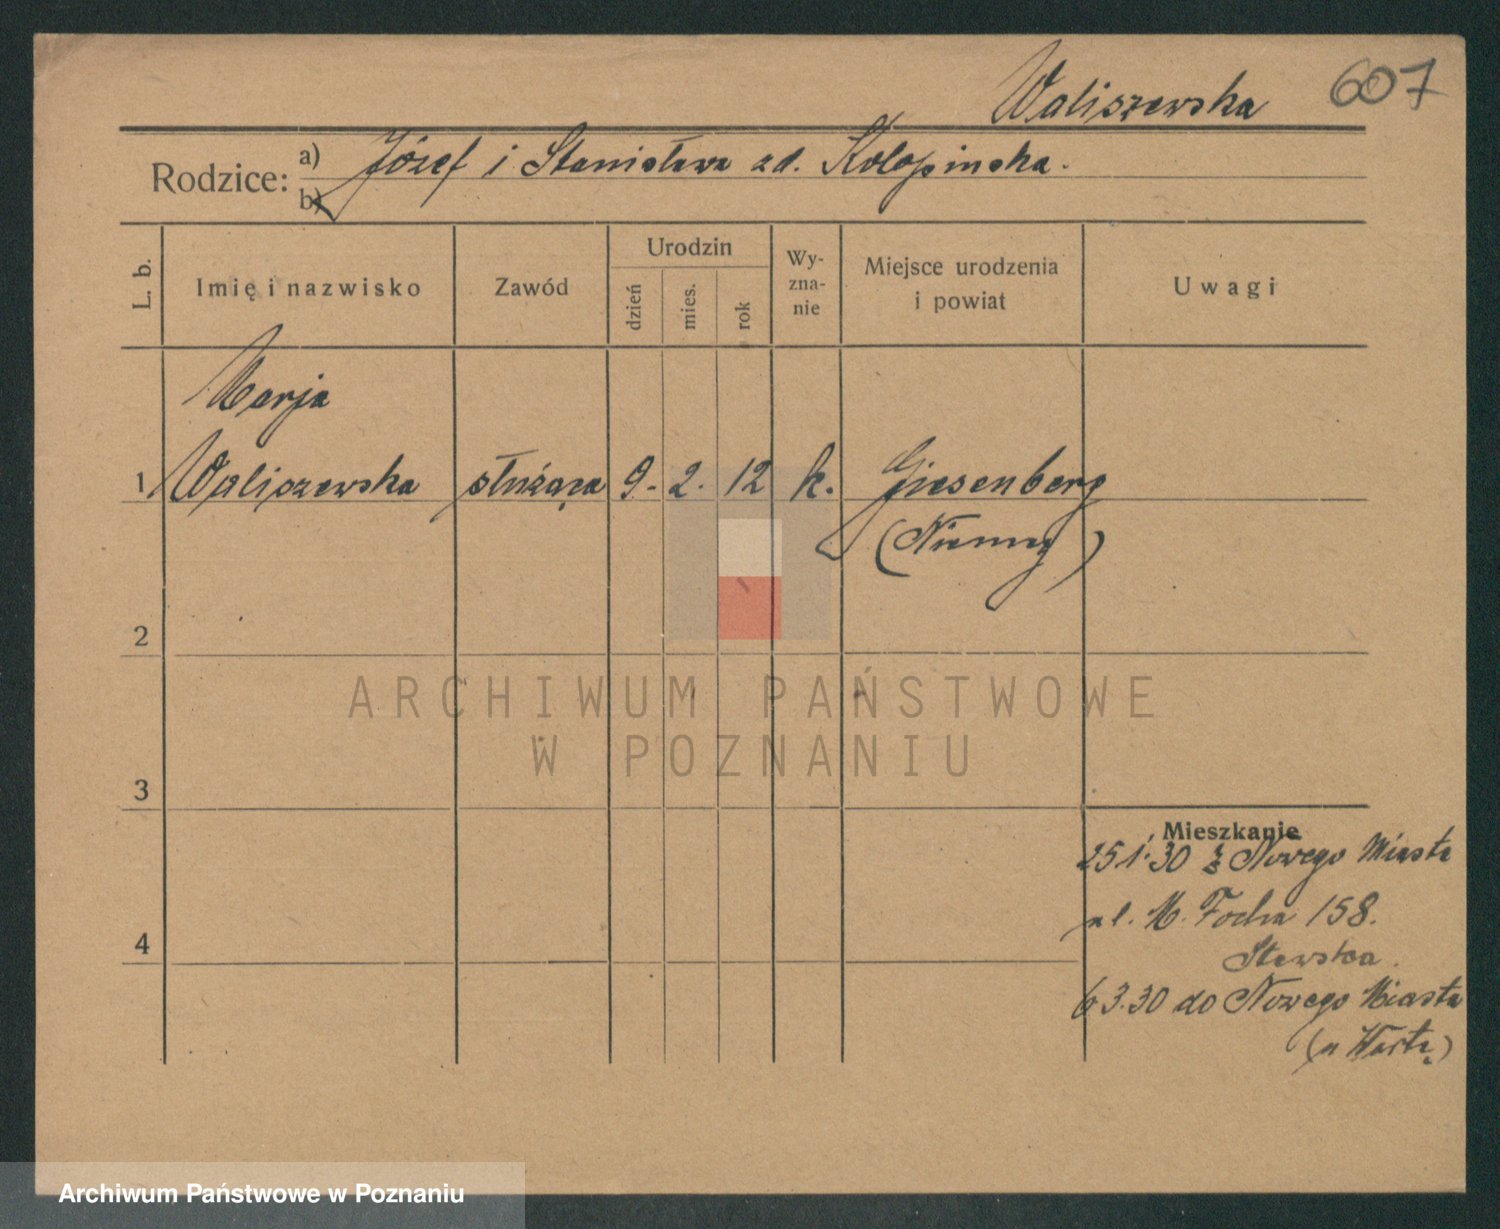 Waliszewska 607
Rodzice: a) Józef i Stanisława zd. Kolopinska.
b)
L. b.
Imię i nazwisko
Zawód
Urodzin
dzień
mies.
rok
Wy-
zna-
nie
Miejsce urodzenia
i powiat
Uwagi
Marja
1 Waliszewska służąca 9. 2. 12 k. Giesenberg
(Niemcy)
2
3
4
ARCHIWUM PAŃSTWOWE
W POZNANIU
Mieszkanie
25 1. 30 z Nowego Miasta
ul. M. Focha 158.
6 3. 30 do Nowego Miasta
(n Wartą)
Archiwum Państwowe w Poznaniu